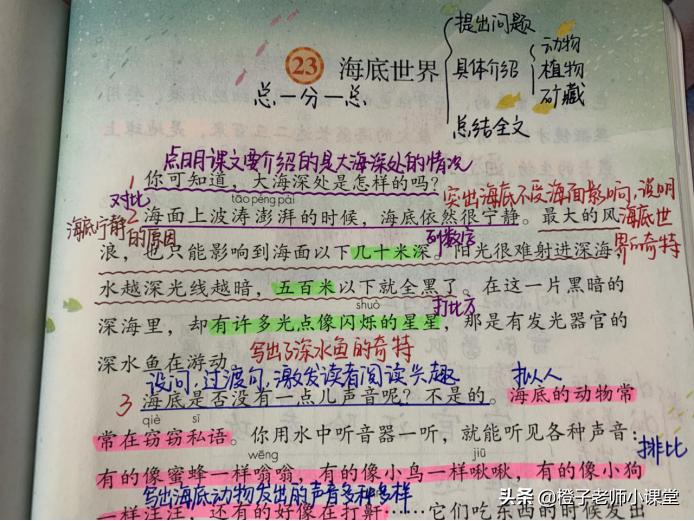 提出问题
23 海底世界
具体介绍
动物
植物
矿藏
总一分一总
总结全文
点明课文要介绍的是大海深处的情况
1 你可知道，大海深处是怎样的吗？
对比
tāo péng pài
突出海底不受海面影响，说明海底世界的奇特
2 海面上波涛澎湃的时候，海底依然很宁静。最大的风
海底宁静的原因
列数字
浪，也只能影响到海面以下几十米深。阳光很难射进深海，
水越深光线越暗，五百米以下就全黑了。在这一片黑暗的
shuò
打比方
深海里，却有许多光点像闪烁的星星，那是有发光器官的
深水鱼在游动。
写出了深水鱼的奇特
设问，过渡句，激发读者阅读兴趣
拟人
3 海底是否没有一点儿声音呢？不是的。海底的动物常
qiè sī
常在窃窃私语。你用水中听音器一听，就能听见各种声音：
排比
wēng jiū
有的像蜜蜂一样嗡嗡，有的像小鸟一样啾啾，有的像小狗
写出海底动物发出的声音多种多样
一样汪汪，还有的好像在打鼾……它们吃东西的时候发出
头条 @橙子老师小课堂